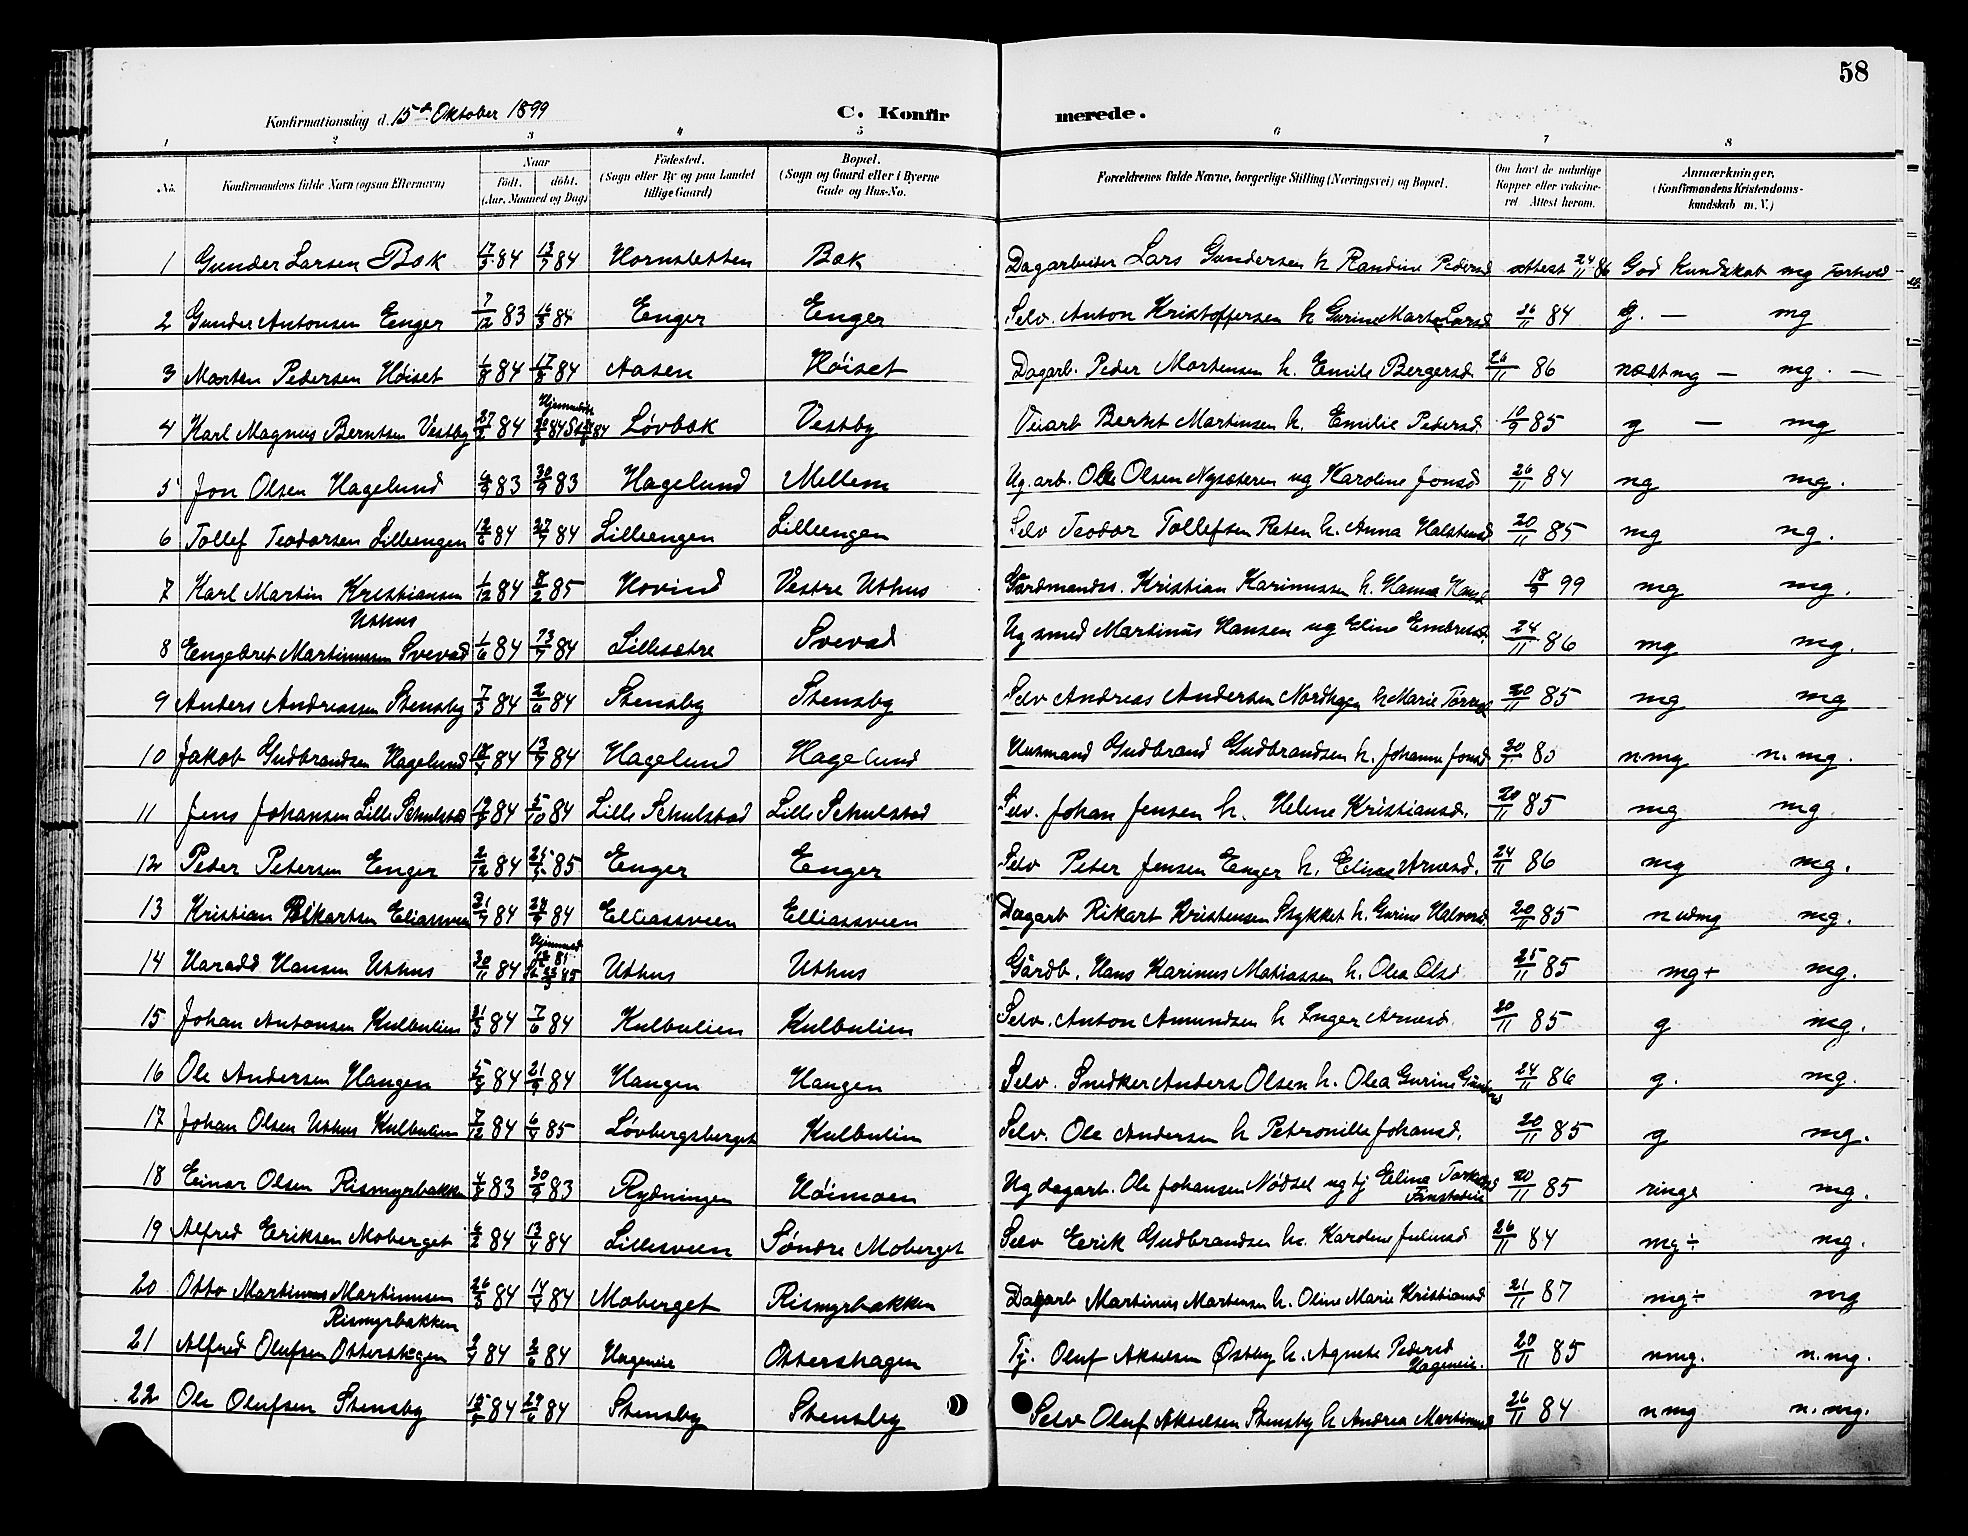 58
Konfirmationsdag d. 15de Oktober 1899 C. Konfirmerede.
1 2 3 4 5 6 7 8
No. Konfirmandens fulde Navn (ogsaa Efternavn) Naar født. døbt. (Aar, Maaned og Dag) Fødested. (Sogn eller By og paa Landet tillige Gaard) Bopæl. (Sogn og Gaard eller i Byerne Gade og Hus-No. Forældrenes fulde Navne, borgerlige Stilling (Næringsvei) og Bopæl. Om havt de naturlige Kopper eller vaccineret Attest herom. Anmærkninger. (Konfirmandens Kristendomskundskab m. V.)
1 Gunder Larsen Bak 17/5 84 13/7 84 Hornsletten Bak Dagarbeider Lars Gundersen h Randine Pedersd attest 24/11 86 God Kundskab mg Forhold
2 Gunder Antonsen Enger 7/12 83 16/3 84 Enger Enger Selv. Anton Kristoffersen h Gurine Marte Larsd 26/11 84 g. — mg
3 Morten Pedersen Høiset 1/8 84 17/8 84 Aasen Høiset Dagarb. Peder Mortensen h. Emile Bergersd. 26/11 86 næst mg — mg. —
4 Karl Magnus Berntsen Vestby 27/2 84 Hjemmedøbt 84 Løvbak Vestby Veiarb Bernt Martinsen h. Emilie Pedersd. 10/9 85 g — mg
5 Jon Olsen Hagelund 83 30/9 83 Hagelund Mellem Ug. arb. Ole Olsen Nysæteren ug Karoline Jonsd 26/11 84 ng mg.
6 Tollef Teodorsen Lilleengen 12/6 84 27/7 84 Lilleengen Lilleengen Selv Teodor Tollefsen Røsen h. Anna Halstensd 20/11 85 mg ng.
7 Karl Martin Kristiansen 1/12 84 8/2 85 Hovind Vestre Uthus Gårdmands. Kristian Karinussen h. Hanna Hansd 18/9 99 mg mg.
Uthus
8 Engebret Martinussen Svevad 1/6 84 13/7 84 Lillesætre Svevad Ug smed Martinus Hansen ug Eline Embretsd. 24/11 86 mg mg.
9 Anders Andreassen Stensby 7/3 84 2/6 84 Stensby Stensby Selv Andreas Andersen Nordhagen h Marie 20/11 85 mg mg
10 Jakob Gudbrandsen Hagelund 84 13/7 84 Hagelund Hagelund Husmand Gudbrand Gudbrandsen h. Johanne Jonsd n.mg n. mg.
11 Jens Johansen Lille Schulstad 12/8 84 5/10 84 Lille Schulstad Lille Schulstad Selv. Johan Jensen h. Helene Kristiansd. 20/11 85 mg mg.
12 Peder Petersen Enger 2/12 84 25/5 85 Enger Enger Selv Peter Jensen Enger h. Elinae Arnesd. 24/11 86 mg mg.
13 Kristian Rikartsen Eliassveen 31/7 84 28/9 84 Elliassveen Elliassveen Dagarb Rikart Kristensen Stykket h. Gurine Halvorsd 20/11 85 mg.
14 Harald Hansen Uthus 30/11 84 Hjemmed 85 Uthus Uthus Gårdb. Hans Karinus Matiassen h. Olea Olsd 25/11 85 mg+ mg.
15 Johan Antonsen Kulbulien 31/3 84 7/6 84 Kulbulien Kulbulien Selv. Anton Amundsen h Inger Arnesd. 20/11 85 g mg.
16 Ole Andersen Hangen 84 21/9 84 Hangen Hangen Selv. Snedker Anders Olsen h. Olea Gurine 24/11 86 g. mg.
17 Johan Olsen Uthus Kulbulien 7/12 84 6/4 85 Løvbergsberget Kulbulien Selv. Ole Andersen h Petronille Johansd. 20/11 85 g mg.
18 Einar Olsen Rismyrbakken 83 30/9 83 Rydningen Høimoen Ug dagarb. Ole Johansen Nødsel ug tj Elina 20/11 85 ringe mg.
19 Alfred Eriksen Moberget 6/2 84 13/4 84 Lillesveen Søndre Moberget Selv Eerik Gudbrandsen h. Karoline Juliusd 26/11 84 mg÷ mg.
20 Otto Martinus Martinussen 26/5 84 84 Moberget Rismyrbakken Dagarb Martinus Martensen h. Oline Marie Kristiansd 21/11 87 mg÷ mg
Rismyrbakken
21 Alfred Olufsen Ottershagen 84 2/6 84 Hageneie Ottershagen Tj. Oluf Akselsen Østby h. Agnete Pedersd Hageneie. 20/11 85 nmg. n. mg.
22 Ole Olufsen Stensby 84 29/6 84 Stensby Stensby Selv Oluf Akselsen Stensby h Andrea Martinsd 26/11 84 nmg n. mg.